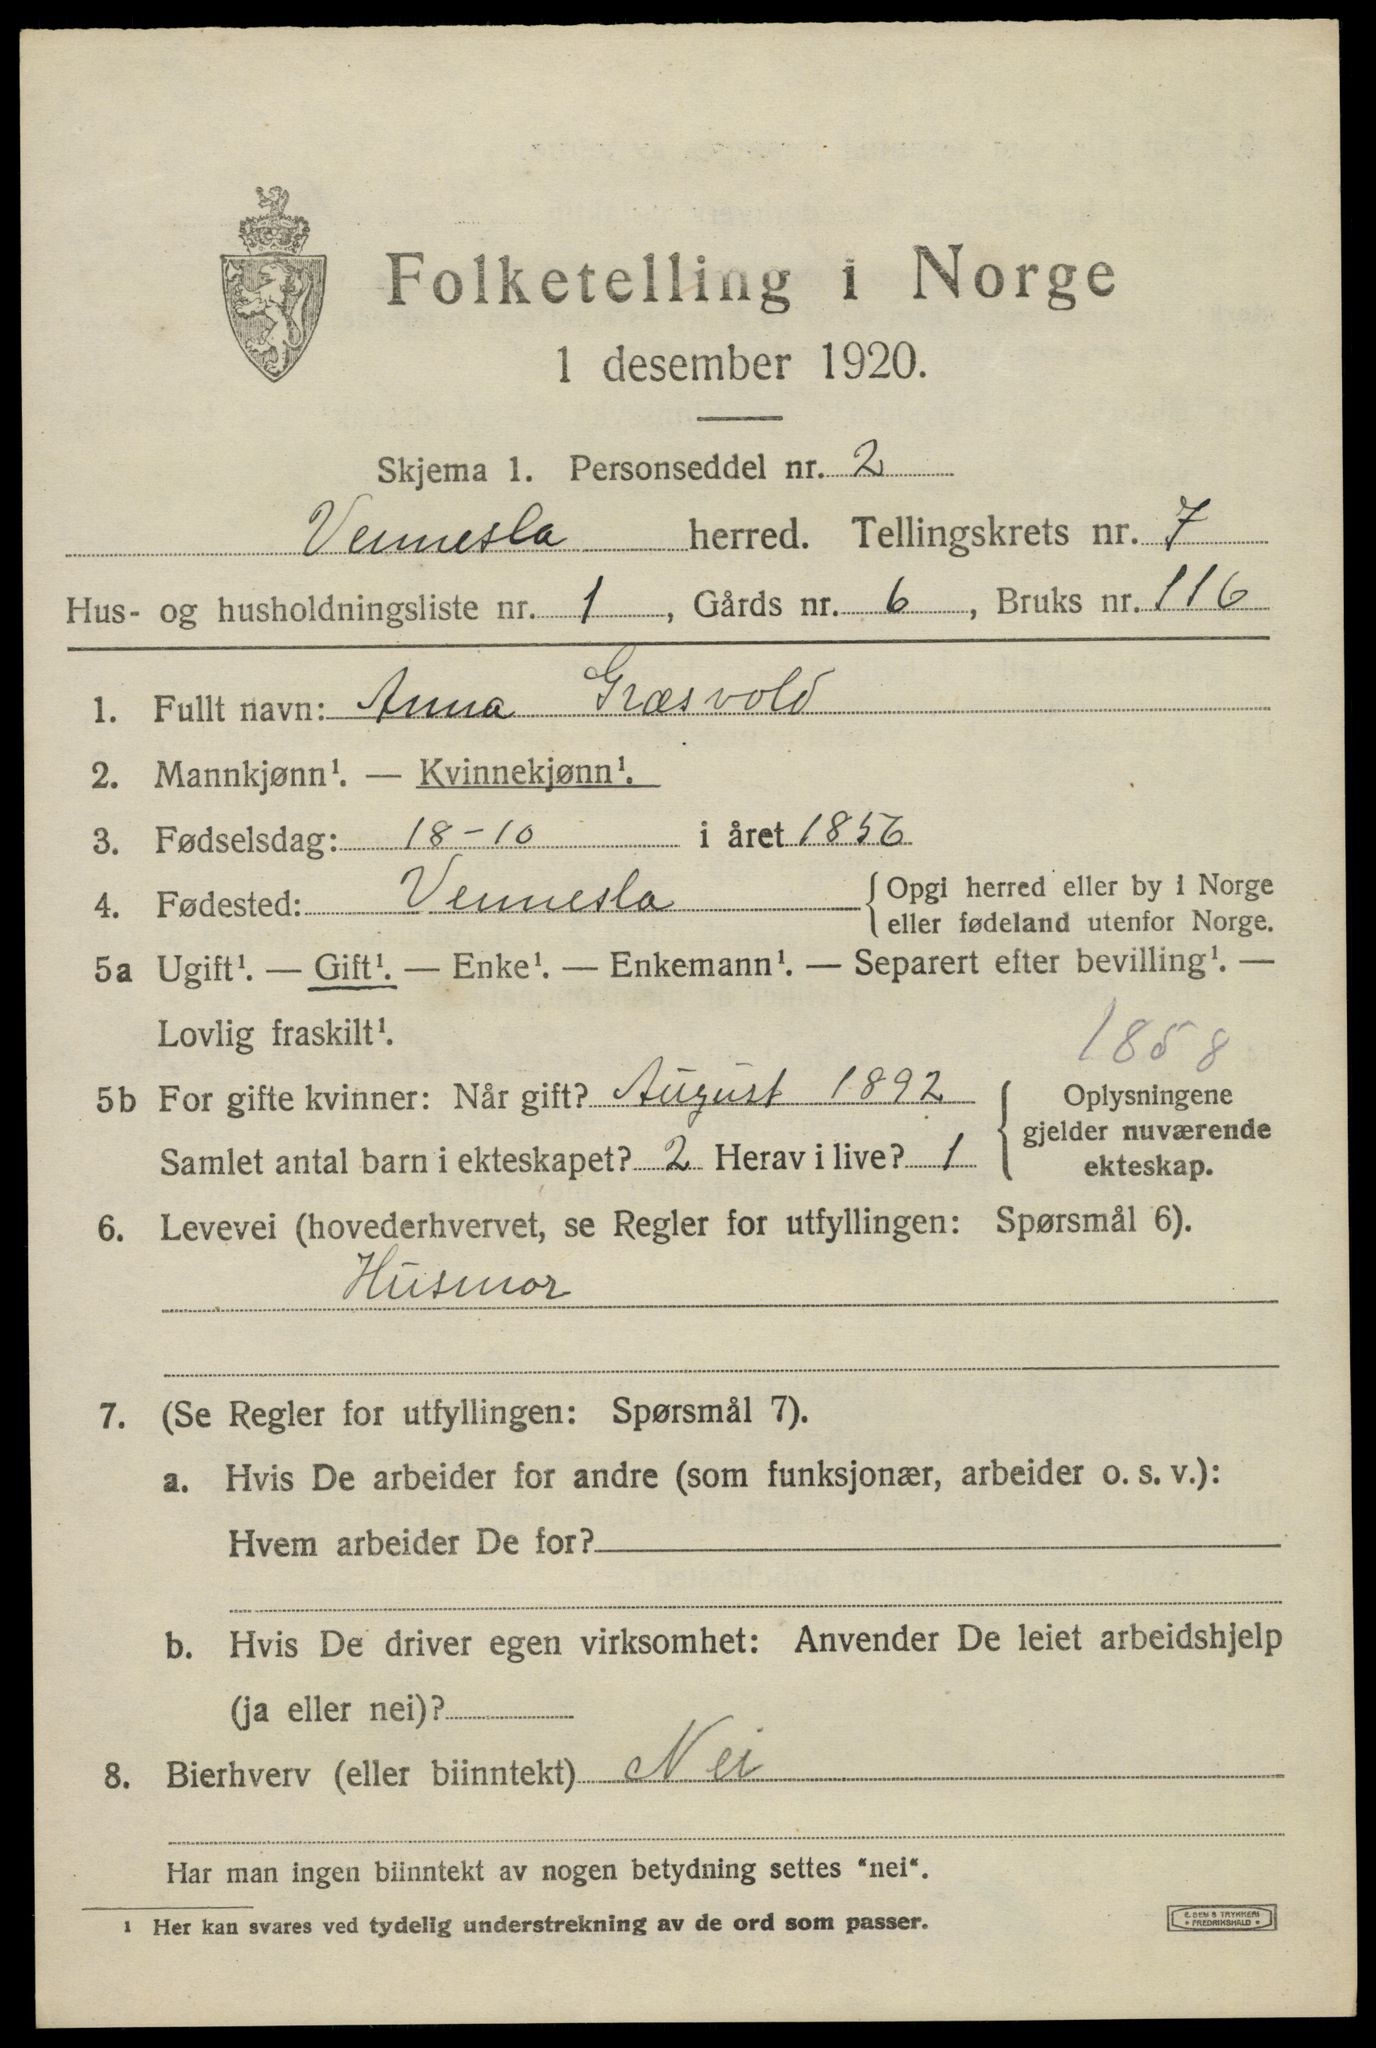 Folketelling i Norge
1 desember 1920.
Skjema 1. Personseddel nr. 2
Vennesla herred. Tellingskrets nr. 7
Hus- og husholdningsliste nr. 1, Gårds nr. 6, Bruks nr. 116
1. Fullt navn: Anna Græsvold
2. Mannkjønn¹. — Kvinnekjønn¹.
3. Fødselsdag: 18-10 i året 1856
4. Fødested: Vennesla { Opgi herred eller by i Norge
eller fødeland utenfor Norge.
5a Ugift¹. — Gift¹. — Enke¹. — Enkemann¹. — Separert efter bevilling¹. —
Lovlig fraskilt¹.
1858
5b For gifte kvinner: Når gift? August 1892
Samlet antal barn i ekteskapet? 2 Herav i live? 1
Oplysningene
gjelder nuværende
ekteskap.
6. Levevei (hovederhvervet, se Regler for utfyllingen: Spørsmål 6).
Husmor
7. (Se Regler for utfyllingen: Spørsmål 7).
a. Hvis De arbeider for andre (som funksjonær, arbeider o. s. v.):
Hvem arbeider De for?
b. Hvis De driver egen virksomhet: Anvender De leiet arbeidshjelp
(ja eller nei)?
8. Bierhverv (eller biinntekt) Nei
Har man ingen biinntekt av nogen betydning settes "nei".
¹ Her kan svares ved tydelig understrekning av de ord som passer.
TRYKKERI
FREDRIKSHALD